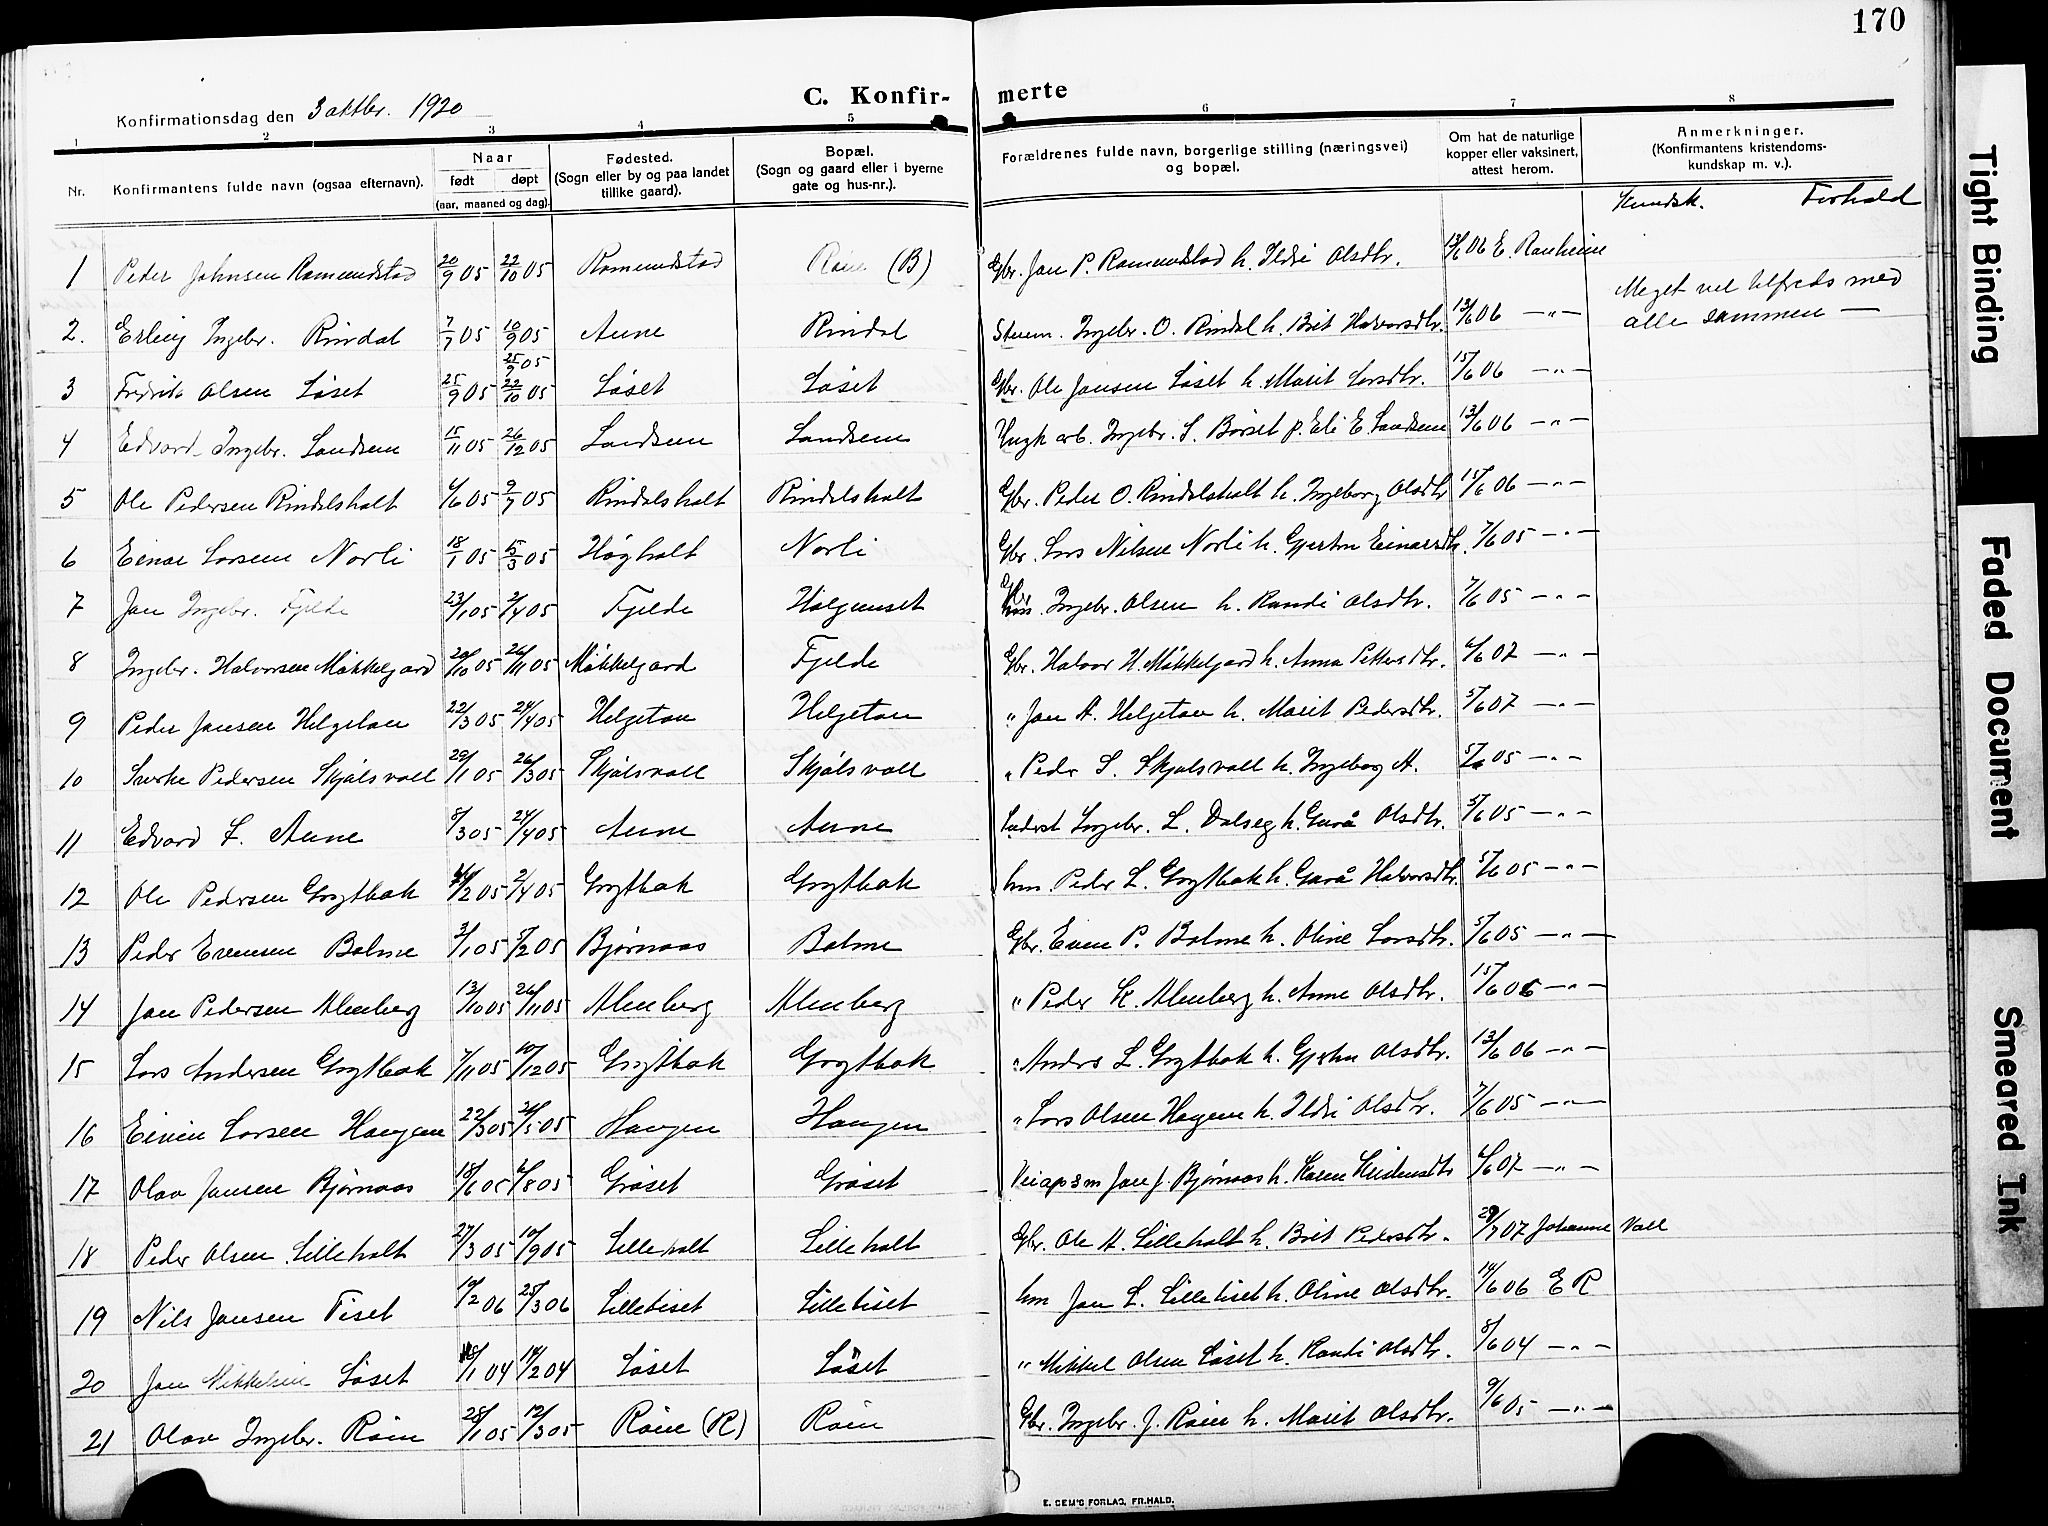 170
Konfirmationsdag den 3 oktbr. 1920
C. Konfir- merte
1 2 3 4 5 6 7 8
Nr. Konfirmantens fulde navn (ogsaa efternavn). Naar født døpt (aar, maaned og dag). Fødested. (Sogn eller by og paa landet tillike gaard). Bopæl. (Sogn og gaard eller i byerne gate og hus-nr.). Forældrenes fulde navn, borgerlige stilling (næringsvei) og bopæl. Om hat de naturlige kopper eller vaksinert, attest herom. Anmerkninger. (Konfirmantens kristendoms-kundskap m. v.).
Kundsk. Forhold
1 Peder Johnsen Romundstad 20/9 05 22/10 05 Romundstad (B) Gbr. Jon P. Romundstad h. Ildri Olsdtr. 13/6 06 E. Ranheim
Meget vel tilfreds med
2. Erling Ingebr. Rindal 7/7 05 10/9 05 Aune Rindal Ingebr. O. Rindal h. Brit Halvorsdtr. 13/6 06 -"- alle sammen —
25/9 05
3 Fredrik Olsen Løset 25/9 05 22/10 05 Løset Løset Gbr. Ole Jonsen Løset h. Marit Larsdtr. 15/6 06 -"-
4 Edvard Ingebr. Landsem 15/11 05 26/12 05 Landsem Landsem Ungk arb. Ingebr. S. Børset p. Eli E. Landsem 13/6 06 -"-
5 Ole Pedersen Rindalsholt 4/6 05 9/7 05 Rindalsholt Rindalsholt Gbr. Peder O. Rindalsholt h. Ingeborg Olsdtr 15/6 06 -"-
6 Einar Larsen Norli 18/1 05 5/3 05 Høgholt Norli Gbr. Lars Nilsen Norli h. Gjertru Einarsdtr. 7/6 05 -"-
7 Jon Ingebr. Fjelde 23/1 05 2/4 05 Fjelde Helgumset Gbr Ingebr. Olsen h. Randi Olsdtr. 7/6 05 -"-
8 Ingebr. Halvorsen Møkkelgard 20/10 05 26/11 05 Møkkelgard Fjelde Gbr. Halvor H. Møkkelgard h. Anna Pettersdtr. 6/6 07 -"-
9 Peder Jonsen Helgetun 22/3 05 24/4 05 Helgetun Helgetun " Jon A. Helgetun h. Marit Pedersdtr. 5/6 07 -"-
10 Sverke Pedersen Skjølsvoll 29/1 05 26/3 05 Skjølsvoll Skjølsvoll " Peder S. Skjølsvoll h. Ingeborg A. 5/6 05 -"-
11 Edvard L. Aune 8/3 05 24/4 05 Aune Aune Inderst Ingebr. L. Dalseg h. Gurå Olsdtr. 5/6 05 -"-
12 Ole Pedersen Grytbak /2 05 2/4 05 Grytbak Grytbak hm. Peder L. Grytbak h. Gurå Halvorsdtr. 5/6 05 -"-
13 Peder Evensen Bolme 3/1 05 5/2 05 Bjørnaas Bolme Gbr. Even P. Bolme h. Oline Larsdtr. 5/6 05 -"-
14 Jon Pedersen Almberg 13/10 05 26/11 05 Almberg Almberg " Peder K. Almberg h. Anne Olsdtr. 15/6 06 -"-
15 Lars Andersen Grytbak 7/11 05 10/12 05 Grytbak Grytbak " Anders L. Grytbak h. Gjertru Olsdtr. 13/6 06 -"-
16 Eivin Larsen Haugen 22/3 05 21/5 05 Haugen Haugen " Lars Olsen Haugen h. Ildri Olsdtr. 7/6 05 -"-
17 Olav Jonsen Bjørnaas 18/6 05 6/8 05 Grøset Grøset Veiopsm Jon J. Bjørnaas h. Karen Kristensdtr 6/6 07 -"-
18 Peder Olsen Lilleholt 27/3 05 10/9 05 Lilleholt Lilleholt Gbr. Ole A. Lilleholt h. Brit Pedersdtr. 29/7 07 Johanne Voll
19 Nils Jonsen Tiset 10/2 06 25/3 06 Lilletiset Lilletiset hm Jon L. Lilletiset h. Oline Olsdtr. 14/6 06 E R
20 Jon Mikkelsen Løset 18/1 04 14/2 04 Løset Løset " Mikkel Olsen Løset h. Randi Olsdtr. 8/6 04 -"-
21 Olav Ingebr. Røen 28/1 05 12/3 05 Røen (R) Røen Gbr. Ingebr. J. Røen h. Marit Olsdtr. 9/6 05 -"-
E. SEM'S FORLAG, FR.HALD.
Tight Binding
Faded Document
Smeared Ink